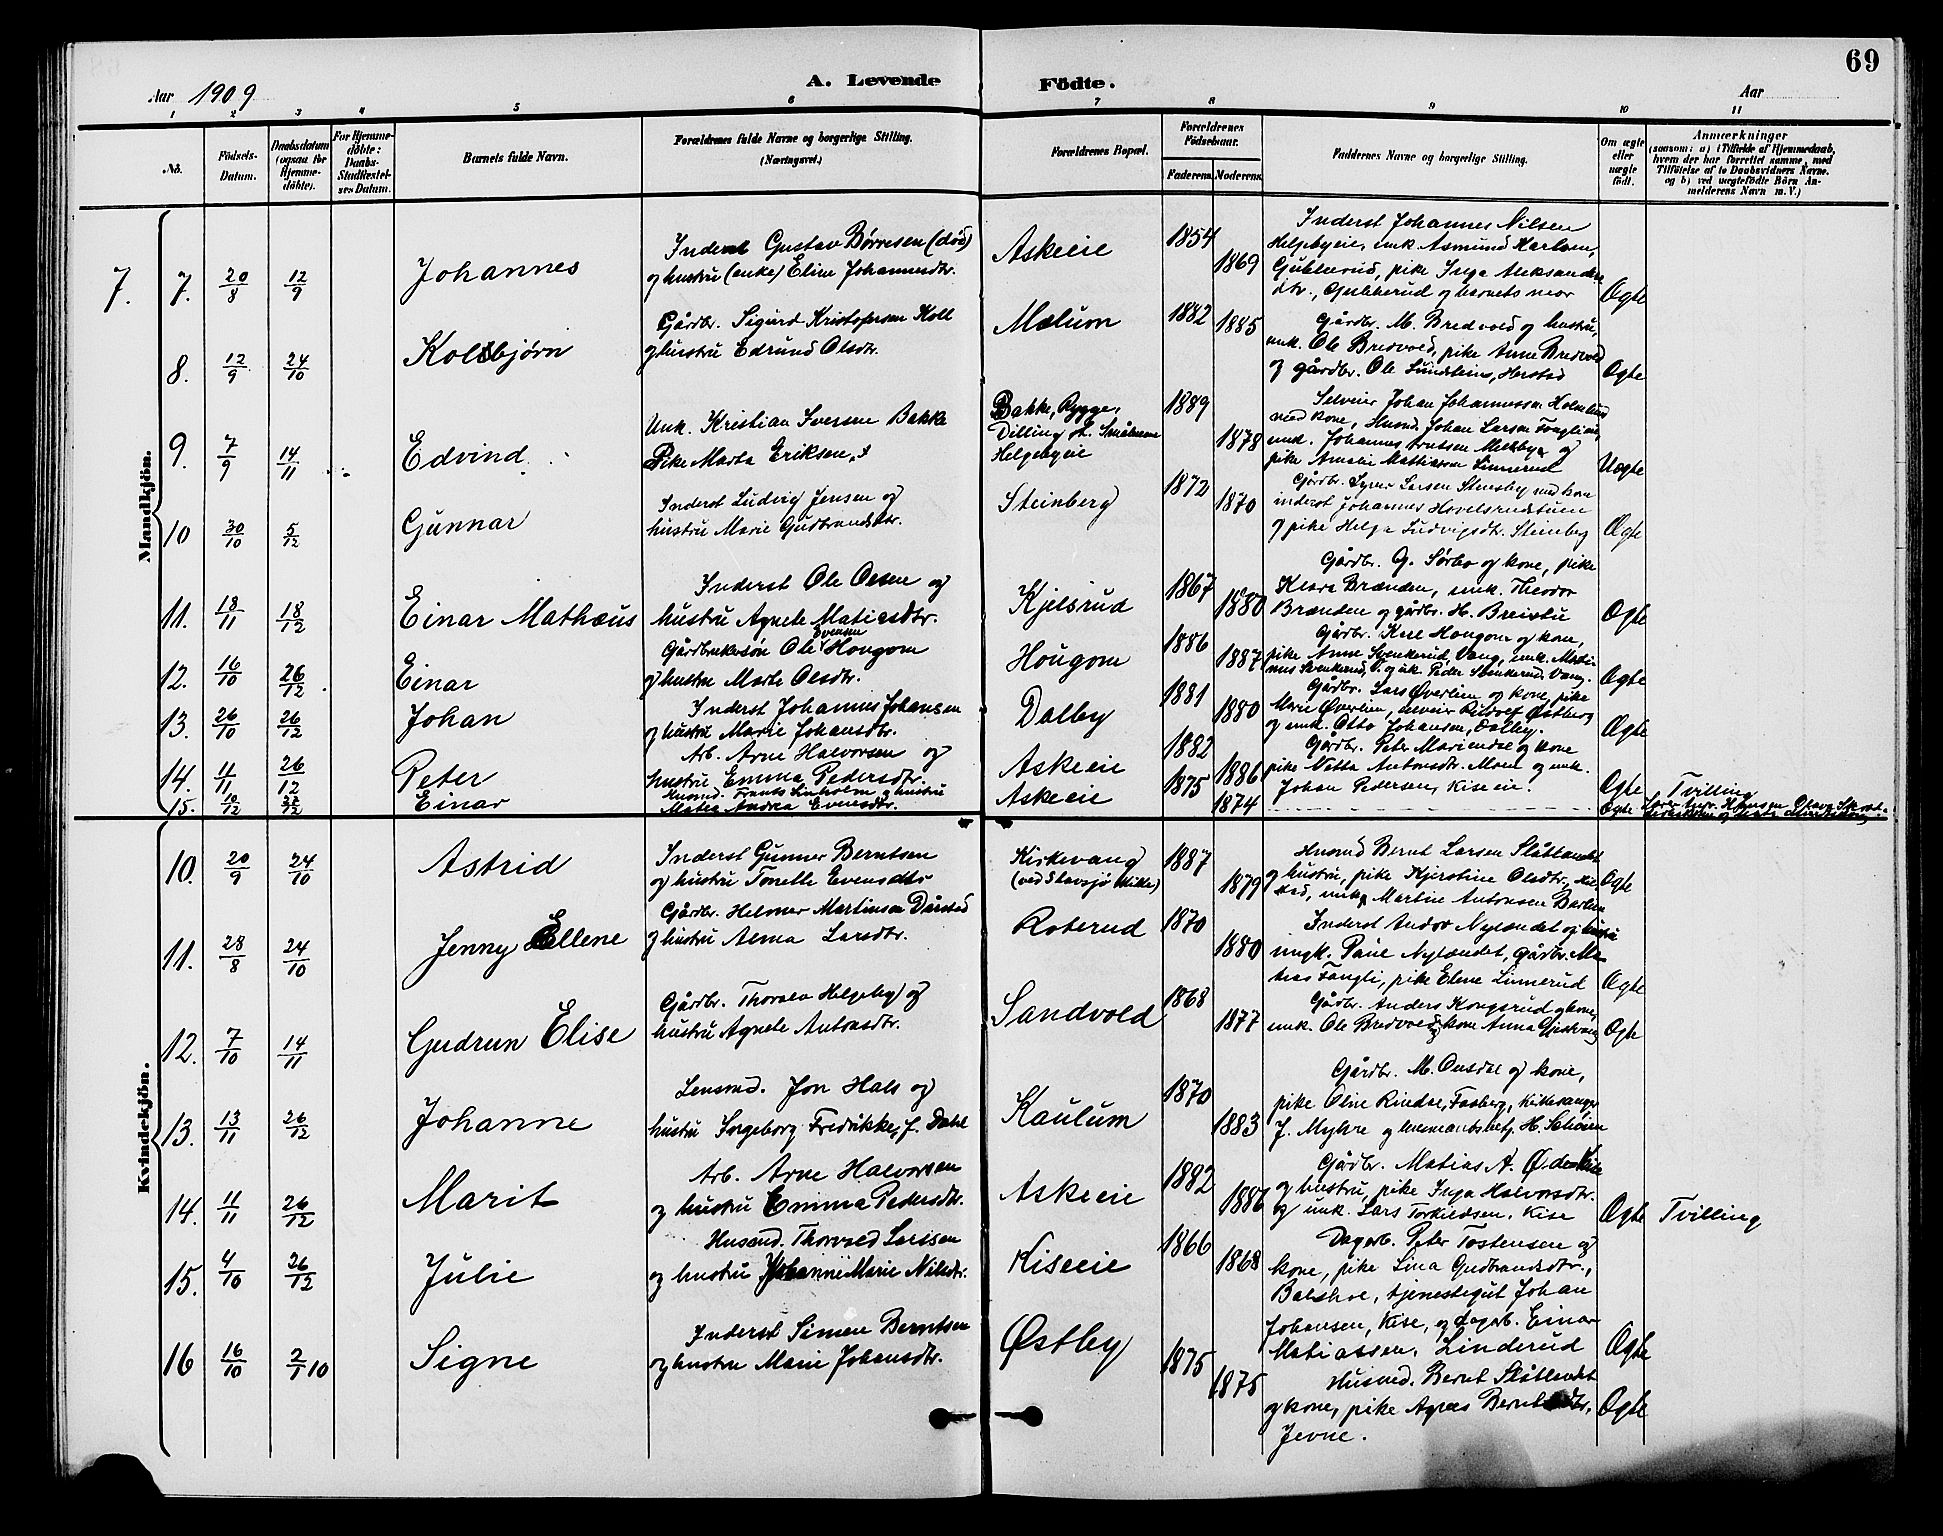 69
A. Levende Födte.
Aar 1909
Aar
1 2 3 4 5 6 7 8 9 10 11
No.
Födsels-Datum.
Daabsdatum (ogsaa for Hjemmedöbte).
For Hjemmedöbte: Daabs-Stadfæstelses Datum.
Barnets fulde Navn.
Forældrenes fulde Navne og borgerlige Stilling. (Næringsvei.)
Forældrenes Bopæl.
Forældrenes Födselsaar.
Faderens. Moderens.
Faddernes Navne og borgerlige Stilling.
Om ægte eller uægte födt.
Anmærkninger
(saasom: a) i Tilfælde af Hjemmedaab, hvem der har forrettet samme, med Tilföielse af to Daabsvidners Navne. og b) ved uægtefödte Börn Anmelderens Navn m. V.)
Mandkjön.
7. 7. 20/8 12/9 Johannes
Inderst Gustav Børresen (død)
og hustru (enke) Eline Johannesdtr.
Askeeie 1854 1869
Inderst Johannes Nilsen
Helgebyeie, umk. Asmund Karlsen,
pike Inga Aleksanders
dtr., og barnets mor
Ægte
8. 12/9 24/10 Kolbjørn
Gårdbr. Sigurd Kristofersen Koll
og hustru Edrund Olsdtr.
Mælum 1882 1885
Gårdbr. M. Bredvold og hustru,
umk. Ole Bredvold, pike Anne Bredvold
og gårdbr. Ole Lundstein, Herstad
Ægte
9. 7/9 14/11 Edvind
Umk. Kristian Iversen Bakke
Pike Marta Eriksen
Bakke, Rygge,
Dilling st. Smålenene
Helgebyeie
1889 1878
Selveier Johan Johannessen
med kone, Husmd. Johan Larsen
umk. Johannes Knutsen og
pike Amalie Mattiassen Linnerud
Uægte
10 30/10 5/12 Gunnar
Inderst Ludvig Jensen og
hustru Marie Gudbrandsdtr.
Steinberg 1872 1870
Gårdbr. Syver Larsen Stensby med kone
inderst Johannes Hovelsrudstuen
og pike Helga Ludvigsdtr. Steinberg
Ægte
11. 18/11 18/12 Einar Mathæus
Inderst Ole Olsen og
hustru Agnete Matiasdtr.
Kjelsrud 1867 1880
Gårdbr. G. Sørbo og kone, pike
Klara Brænden, umk. Theodor
Brænden og gårdbr. H. Breistu
Ægte
12. 16/10 26/12 Einar
Gårdbrukersøn Ole Evensen Hougom
og hustru Marte Olsdtr.
Hougom 1886 1887
Gårdbr. Karl Hougom og kone,
pike Anne Svenkerud, Vang, umk. Marti-
nus Svenkerud, V. og uk. Peder Svenkerud, Vang.
Ægte
13. 26/10 26/12 Johan
Inderst Johannes Johansen
og hustru Marie Johansdtr.
Dalby 1881 1880
Gårdbr. Lars Øverlien og kone, pike
Marie Øverlien, selveier Rudolf Østberg
og umk. Otto Johansen, Dalby.
Ægte
14. 11/11 26/12 Peter
Arb. Arne Halvorsen og
hustru Emma Pedersdtr.
Askeeie 1882 1886
Gårdbr. Peter Mariendal og kone
pike Netta Antonsdtr. Moen og umk.
Johan Pedersen, Kiseeie.
Ægte Tvilling
15. 10/12 /12 Einar
Husmd. Frants Linholm og hustru
Matea Andrea Evensdtr.
Askeeie 1875 1874
Ægte
Kvindekjön.
10. 20/9 24/10 Astrid
Inderst Gunner Berntsen
og hustru Tonette Evensdtr.
Kirkevang
(ved Stavsjø Kirke)
1887 1879
Husmd Bernt Larsen Slåtlandet
og hustru, pike Kjerstine Olsdtr.,
umk. Martin Antonsen
Ægte
11. 28/8 24/10 Jenny Ellene
Gårdbr. Helmer Martinsen Dørstad
og hustru Alma Larsdtr.
Roterud 1870 1880
Inderst Andor Nylændet og hustru
ungk. Paul Nylændet, gårdbr. Ma-
tias Fangli, pike Elene Linnerud
Ægte
12. 7/10 14/11 Gudrun Elise
Gårdbr. Thorvald Helgeby og
hustru Agnete Antonsdtr.
Sandvold 1868 1877
Gårdbr. Anders Kongsrud og kone,
umk. Ole Bredvold, kone Anna
Ægte
13. 13/11 26/12 Johanne
Lensmd. Jon Hals og
hustru Ingeborg Fredrikke, f. Dahl
Kaulum 1870 1883
Gårdbr. M. Onsdal og kone,
pike Oline Rindal, Faaberg, kirkesanger
J. Myhre og lensmandsbetj. H. Schøien
14. 11/11 26/12 Marit
Arb. Arne Halvorsen
og hustru Emma Pedersdtr.
Askeeie 1882 1886
Gårdbr. Matias A. Ødeskise
og hustru, pike Inga Halvorsdtr.
og umk. Lars Torkildsen, Kise
Ægte Tvilling
15. 4/10 26/12 Julie
Husmd. Thorvald Larssen
og hustru Johanne Marie Nilsdtr.
Kiseeie 1866 1868
Dagarb. Peter Tostensen og
kone, pike Lina Gudbrandsdtr.,
Balshol, tjenestegut Johan
Johansen, Kise, og dagarb. Einar
Matiassen, Linderud
Ægte
16 16/10 2/1 10 Signe
Inderst Simen Berntsen
og hustru Marie Johansdtr.
Østby 1875 1875
Husmd. Bernt Slåtlandet
og kone, pike Agnes Berntsdtr.,
Jevne.
Ægte